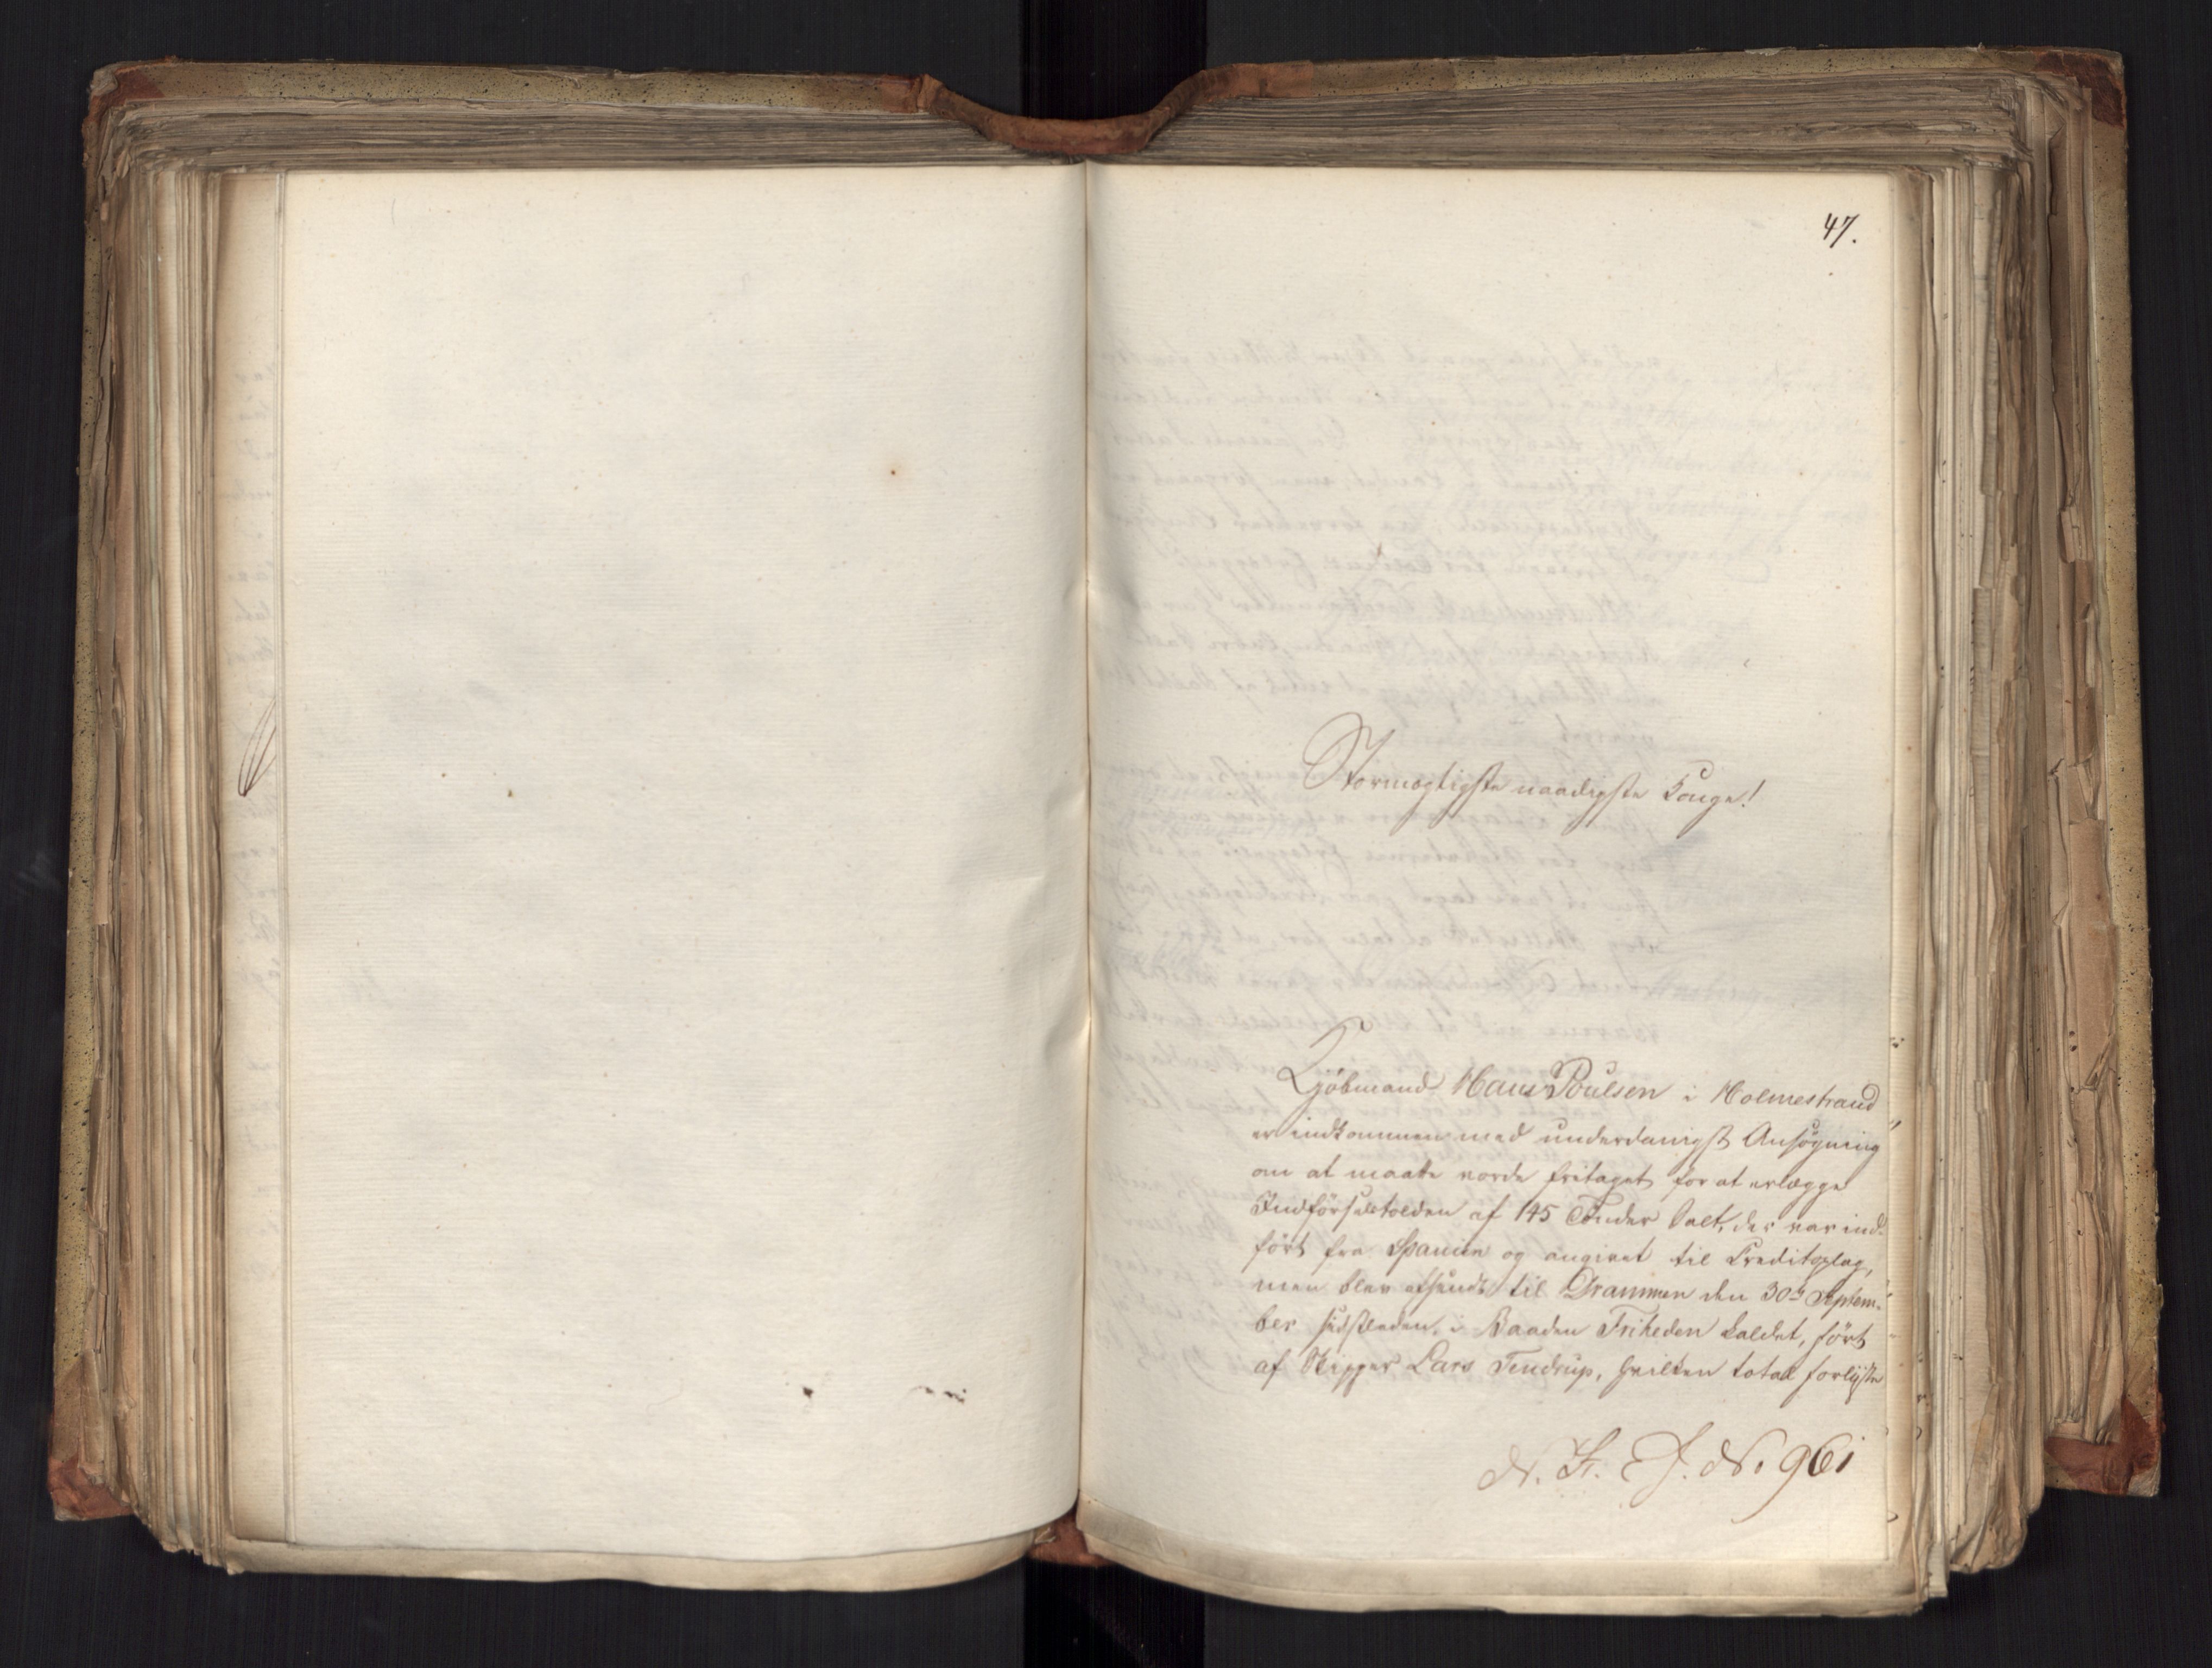 47.
Stormægtigste naadigste Konge!
Kjöbmand Hans Poulsen i Holmestrand
er indkommen med underdanigst Ansögning
om at maatte vorde fritaget for at erlægge
Indförselstolden af 145 Tönder Salt, der var ind-
fört fra Spanien og angivet til Creditoplag,
men blev afsendt til Drammen den 30te Septem-
ber sidstleden, i Baaden Friheden kaldet, fört
af Skipper Lars Tendrup, hvilken total forliiste
N. No 961